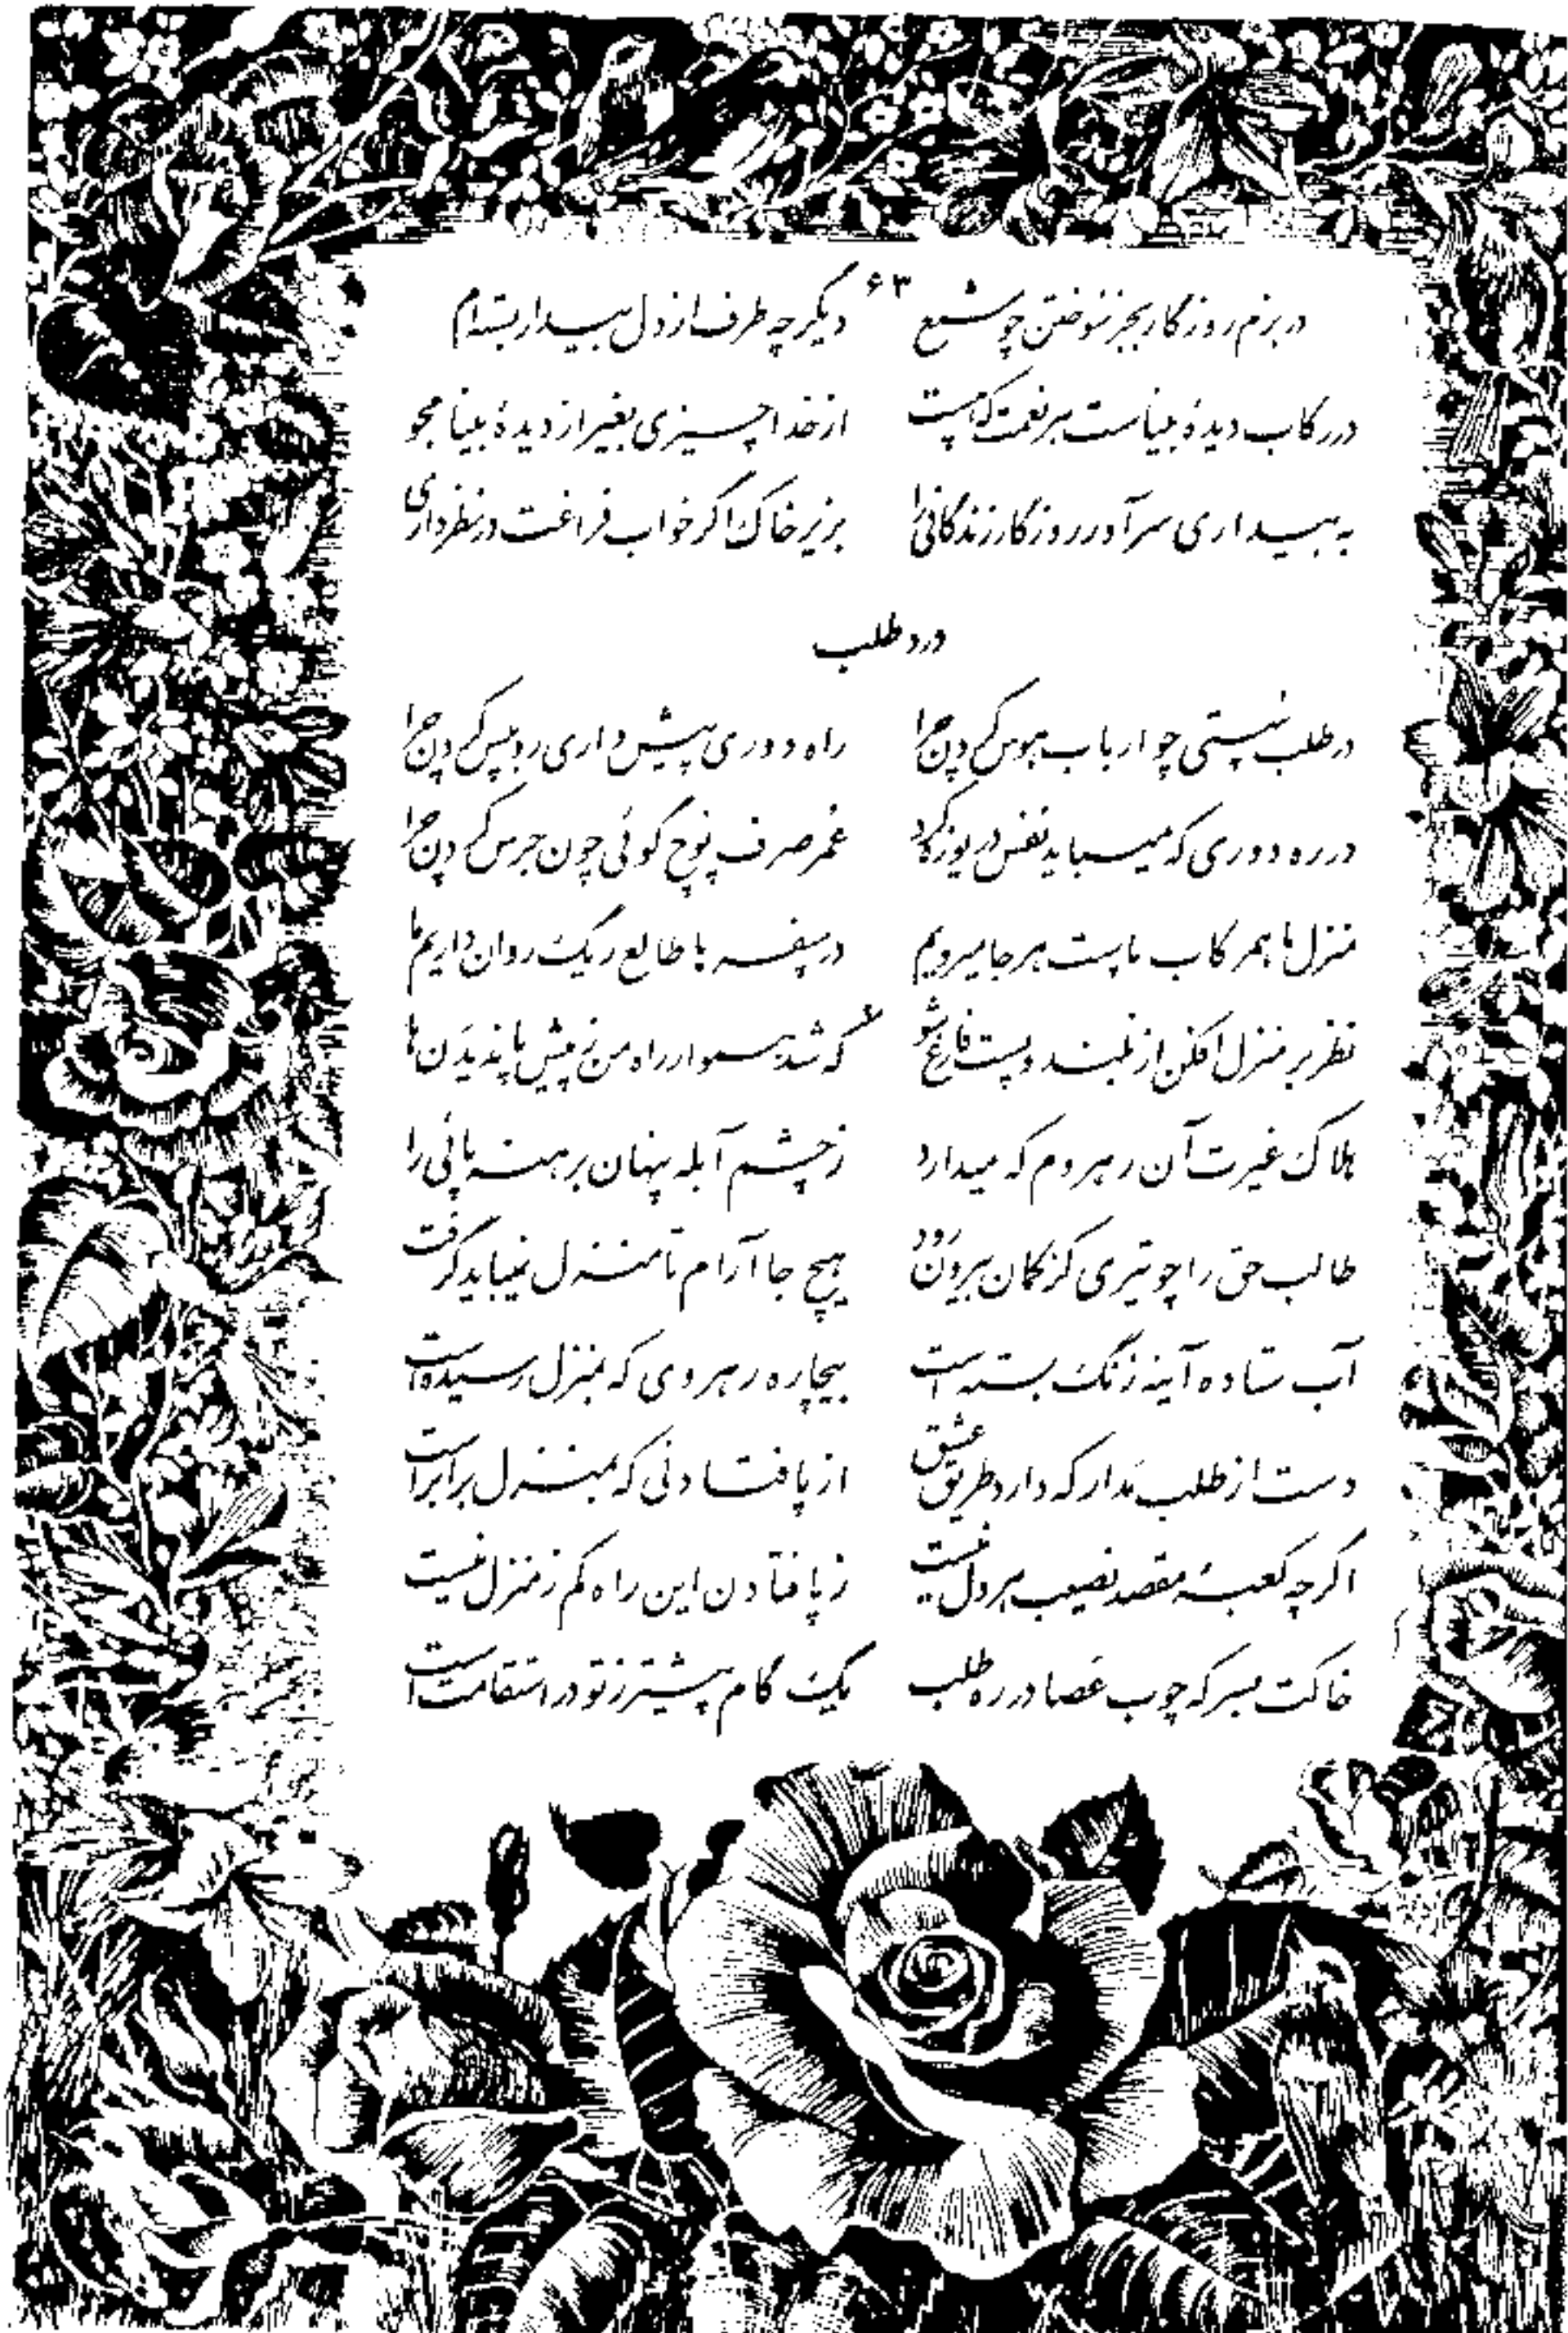 ۶۳
در بزم روزگار بجز سوختن چو شمع دیگر چه طرف از دل بیدار بسته‌ام
در رکاب دیدهٔ بیناست هر نعمت که هست از خدا چیزی بغیر از دیدهٔ بینا مجو
به بیداری سرآور روزگار زندگانی را بزیر خاک اگر خواب فراغت در نظر داری
درد طلب
در طلب سستی چو ارباب هوس کردن چرا راه دوری پیش داری رو به پس کردن چرا
در ره دوری که میباید نفس دریوزه کرد عمر صرف پوچ گوئی چون جرس کردن چرا
منزل ما همرکاب ماست هر جا میرویم در سفرها طالع ریگ روان داریم ما
نظر بر منزل افکن از بلند و پست فارغ شو که شد هموار راه من ز پیش پا ندیدن‌ها
هلاک غیرت آن رهروم که میدارد ز چشم آبله پنهان برهنه پائی را
طالب حق را چو تیری کز کمان بیرون رود هیچ جا آرام تا منزل نمیباید گرفت
آب ستاده آینه زنگ بسته است بیچاره رهروی که بمنزل رسیده است
دست از طلب مدار که دارد طریق عشق از پا فتادنی که بمنزل برابر است
اگر چه کعبهٔ مقصد نصیب هر دل نیست ز پا فتادن این راه کم ز منزل نیست
خاکت بسر که چوب عصا در ره طلب یک گام پیشتر ز تو در استقامت است